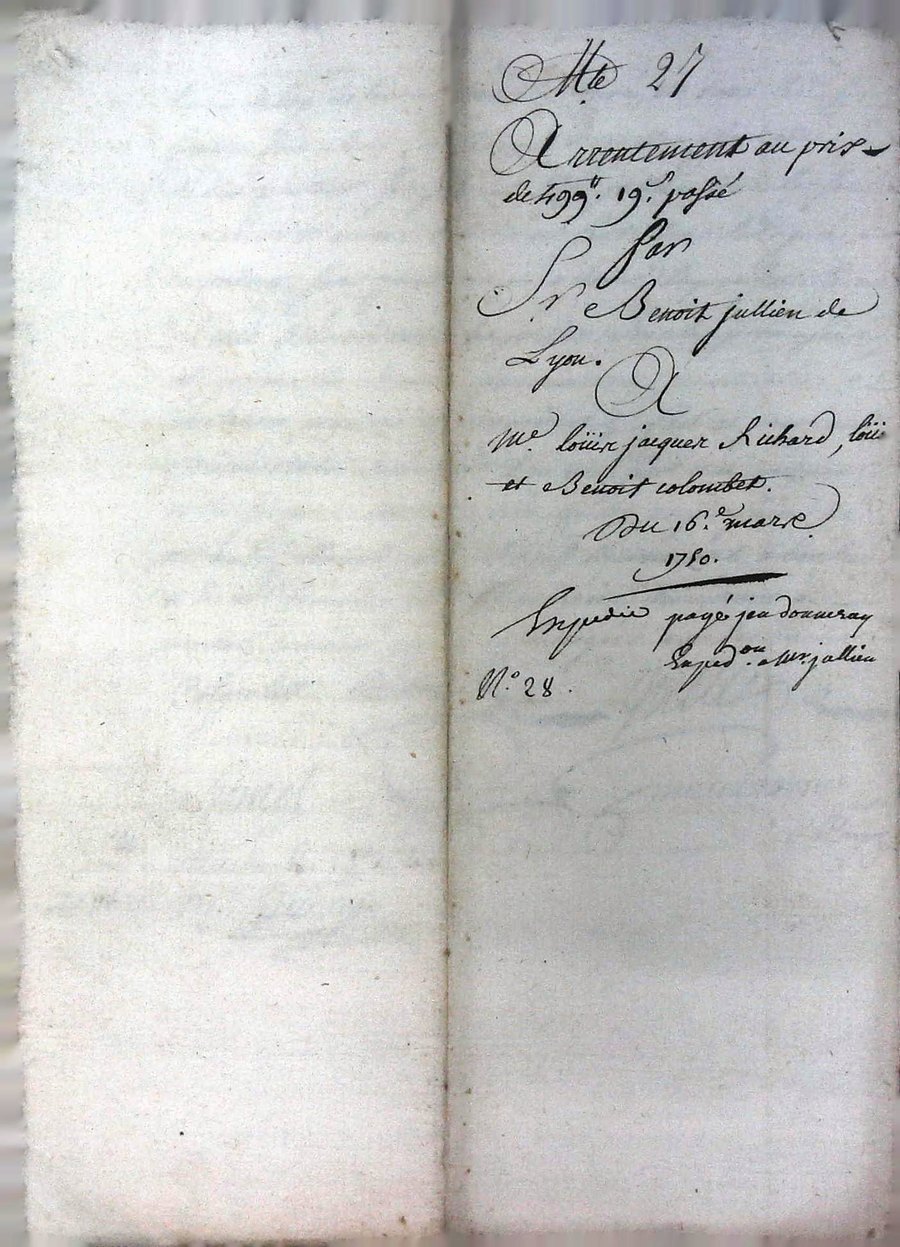 Mte 27
Arrentement au prix
de 499tt. 19s. passé
Par
Sr Benoit jullien de
Lyon.
A
Me. loüis jacques Richard, loüis
et Benoit colombet.
Du 16.e mars
1750.
Expedié payé jen donneray
Exped.on a Mr. jullien
N.o 28.